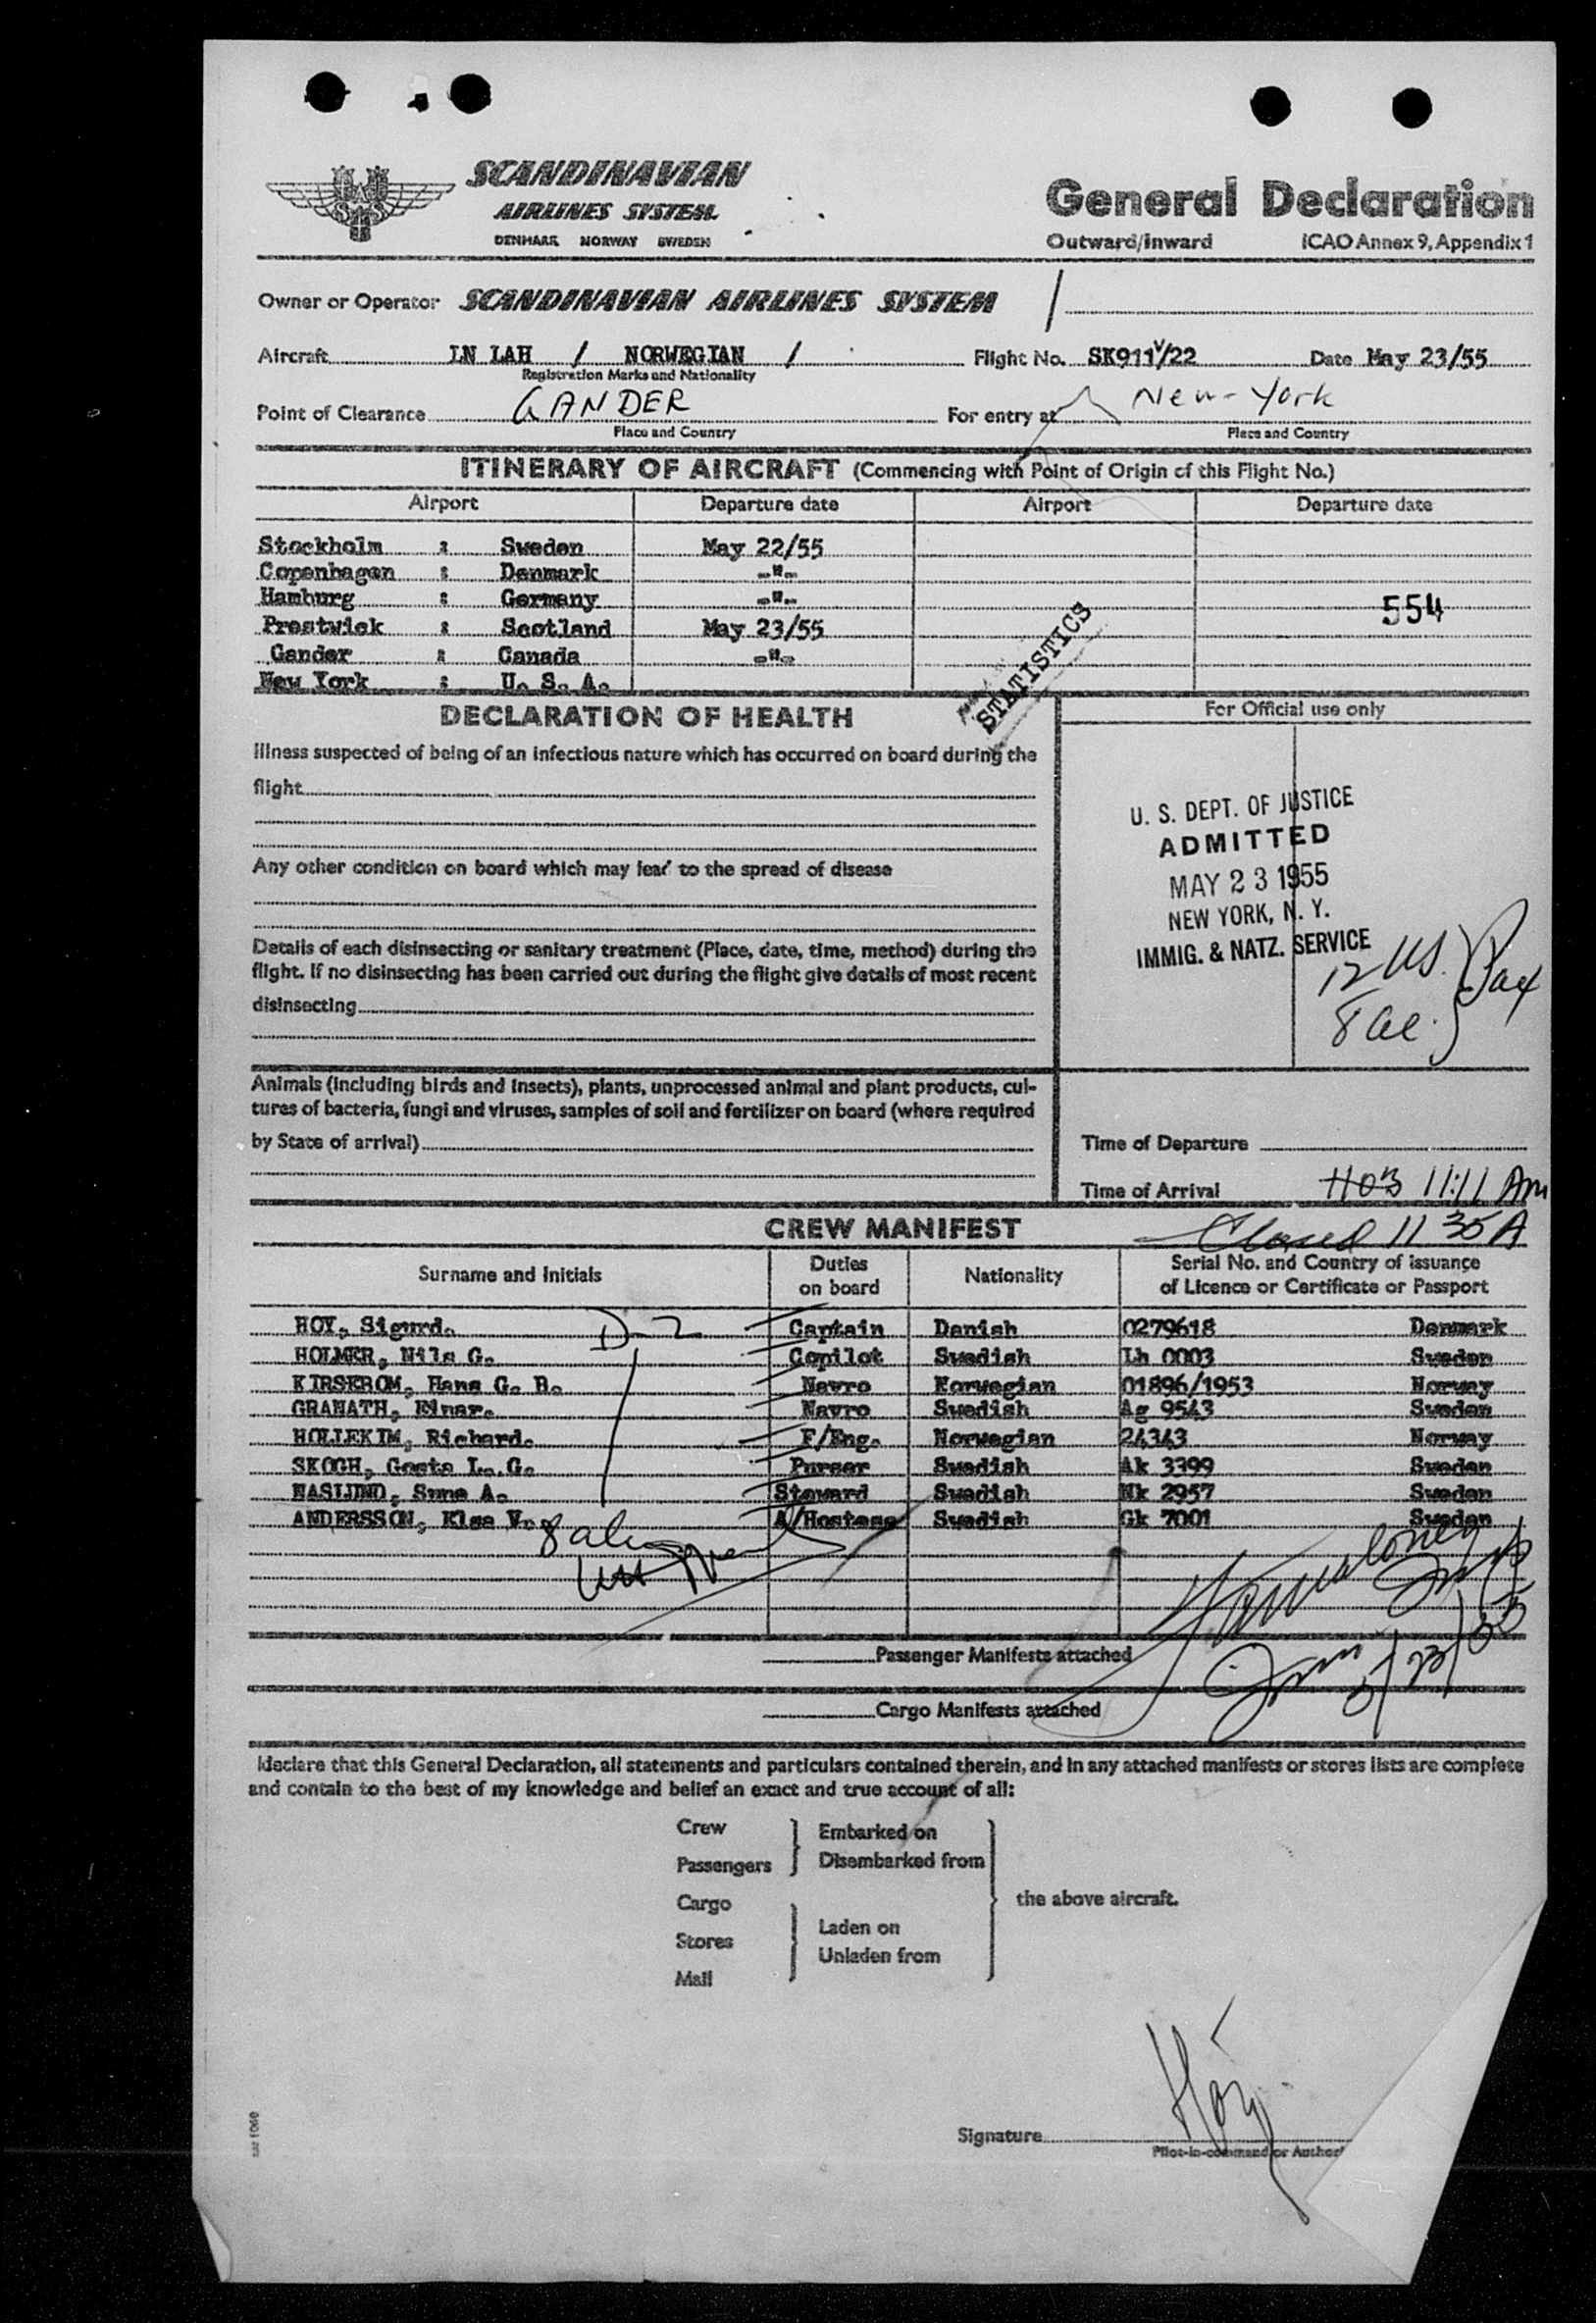 SCANDINAVIAN
AIRLINES SYSTEM
DENMARK NORWAY SWEDEN
General Declaration
Outward/Inward ICAO Annex 9, Appendix 1
Owner or Operator SCANDINAVIAN AIRLINES SYSTEM /
Aircraft LN LAH / NORWEGIAN / Flight No. SK911/22 Date May 23/55
Registration Marks and Nationality
Point of Clearance GANDER For entry at New-York
Place and Country Place and Country
ITINERARY OF AIRCRAFT (Commencing with Point of Origin of this Flight No.)
Airport Departure date Airport Departure date
Stockholm : Sweden May 22/55
Copenhagen : Denmark -"-
Hamburg : Germany -"-
554
Prestwick : Scotland May 23/55
Gander : Canada -"-
New York : U. S. A.
STATISTICS
DECLARATION OF HEALTH
For Official use only
Illness suspected of being of an infectious nature which has occurred on board during the
flight
Any other condition on board which may lead to the spread of disease
Details of each disinsecting or sanitary treatment (Place, date, time, method) during the
flight. If no disinsecting has been carried out during the flight give details of most recent
disinsecting
U. S. DEPT. OF JUSTICE
ADMITTED
MAY 23 1955
NEW YORK, N. Y.
IMMIG. & NATZ. SERVICE
12 US. Pax
8 al.
Animals (including birds and insects), plants, unprocessed animal and plant products, cul-
tures of bacteria, fungi and viruses, samples of soil and fertilizer on board (where required
by State of arrival)
Time of Departure
Time of Arrival 11:11 Am
Closed 11 35 A
CREW MANIFEST
Surname and Initials Duties on board Nationality Serial No. and Country of issuance of Licence or Certificate or Passport
HOY, Sigurd. D-2 Captain Danish 0279618 Denmark
HOLMER, Nils G. Copilot Swedish Lh 0003 Sweden
KIRSEBOM, Hans G. B. Navro Norwegian 01896/1953 Norway
GRANATH, Einar. Navro Swedish Ag 9543 Sweden
HOLLEKIM, Richard. F/Eng. Norwegian 24343 Norway
SKOGH, Gosta L. G. Purser Swedish Ak 3399 Sweden
NASLUND, Sune A. Steward Swedish Mk 2957 Sweden
ANDERSSON, Elsa V. A/Hostess Swedish Gk 7001 Sweden
Passenger Manifests attached
5/23/55
Cargo Manifests attached
I declare that this General Declaration, all statements and particulars contained therein, and in any attached manifests or stores lists are complete
and contain to the best of my knowledge and belief an exact and true account of all:
Crew
Passengers
Embarked on
Disembarked from
Cargo
Stores
Mail
Laden on
Unladen from
the above aircraft.
Signature Höy
Pilot-in-command or Author